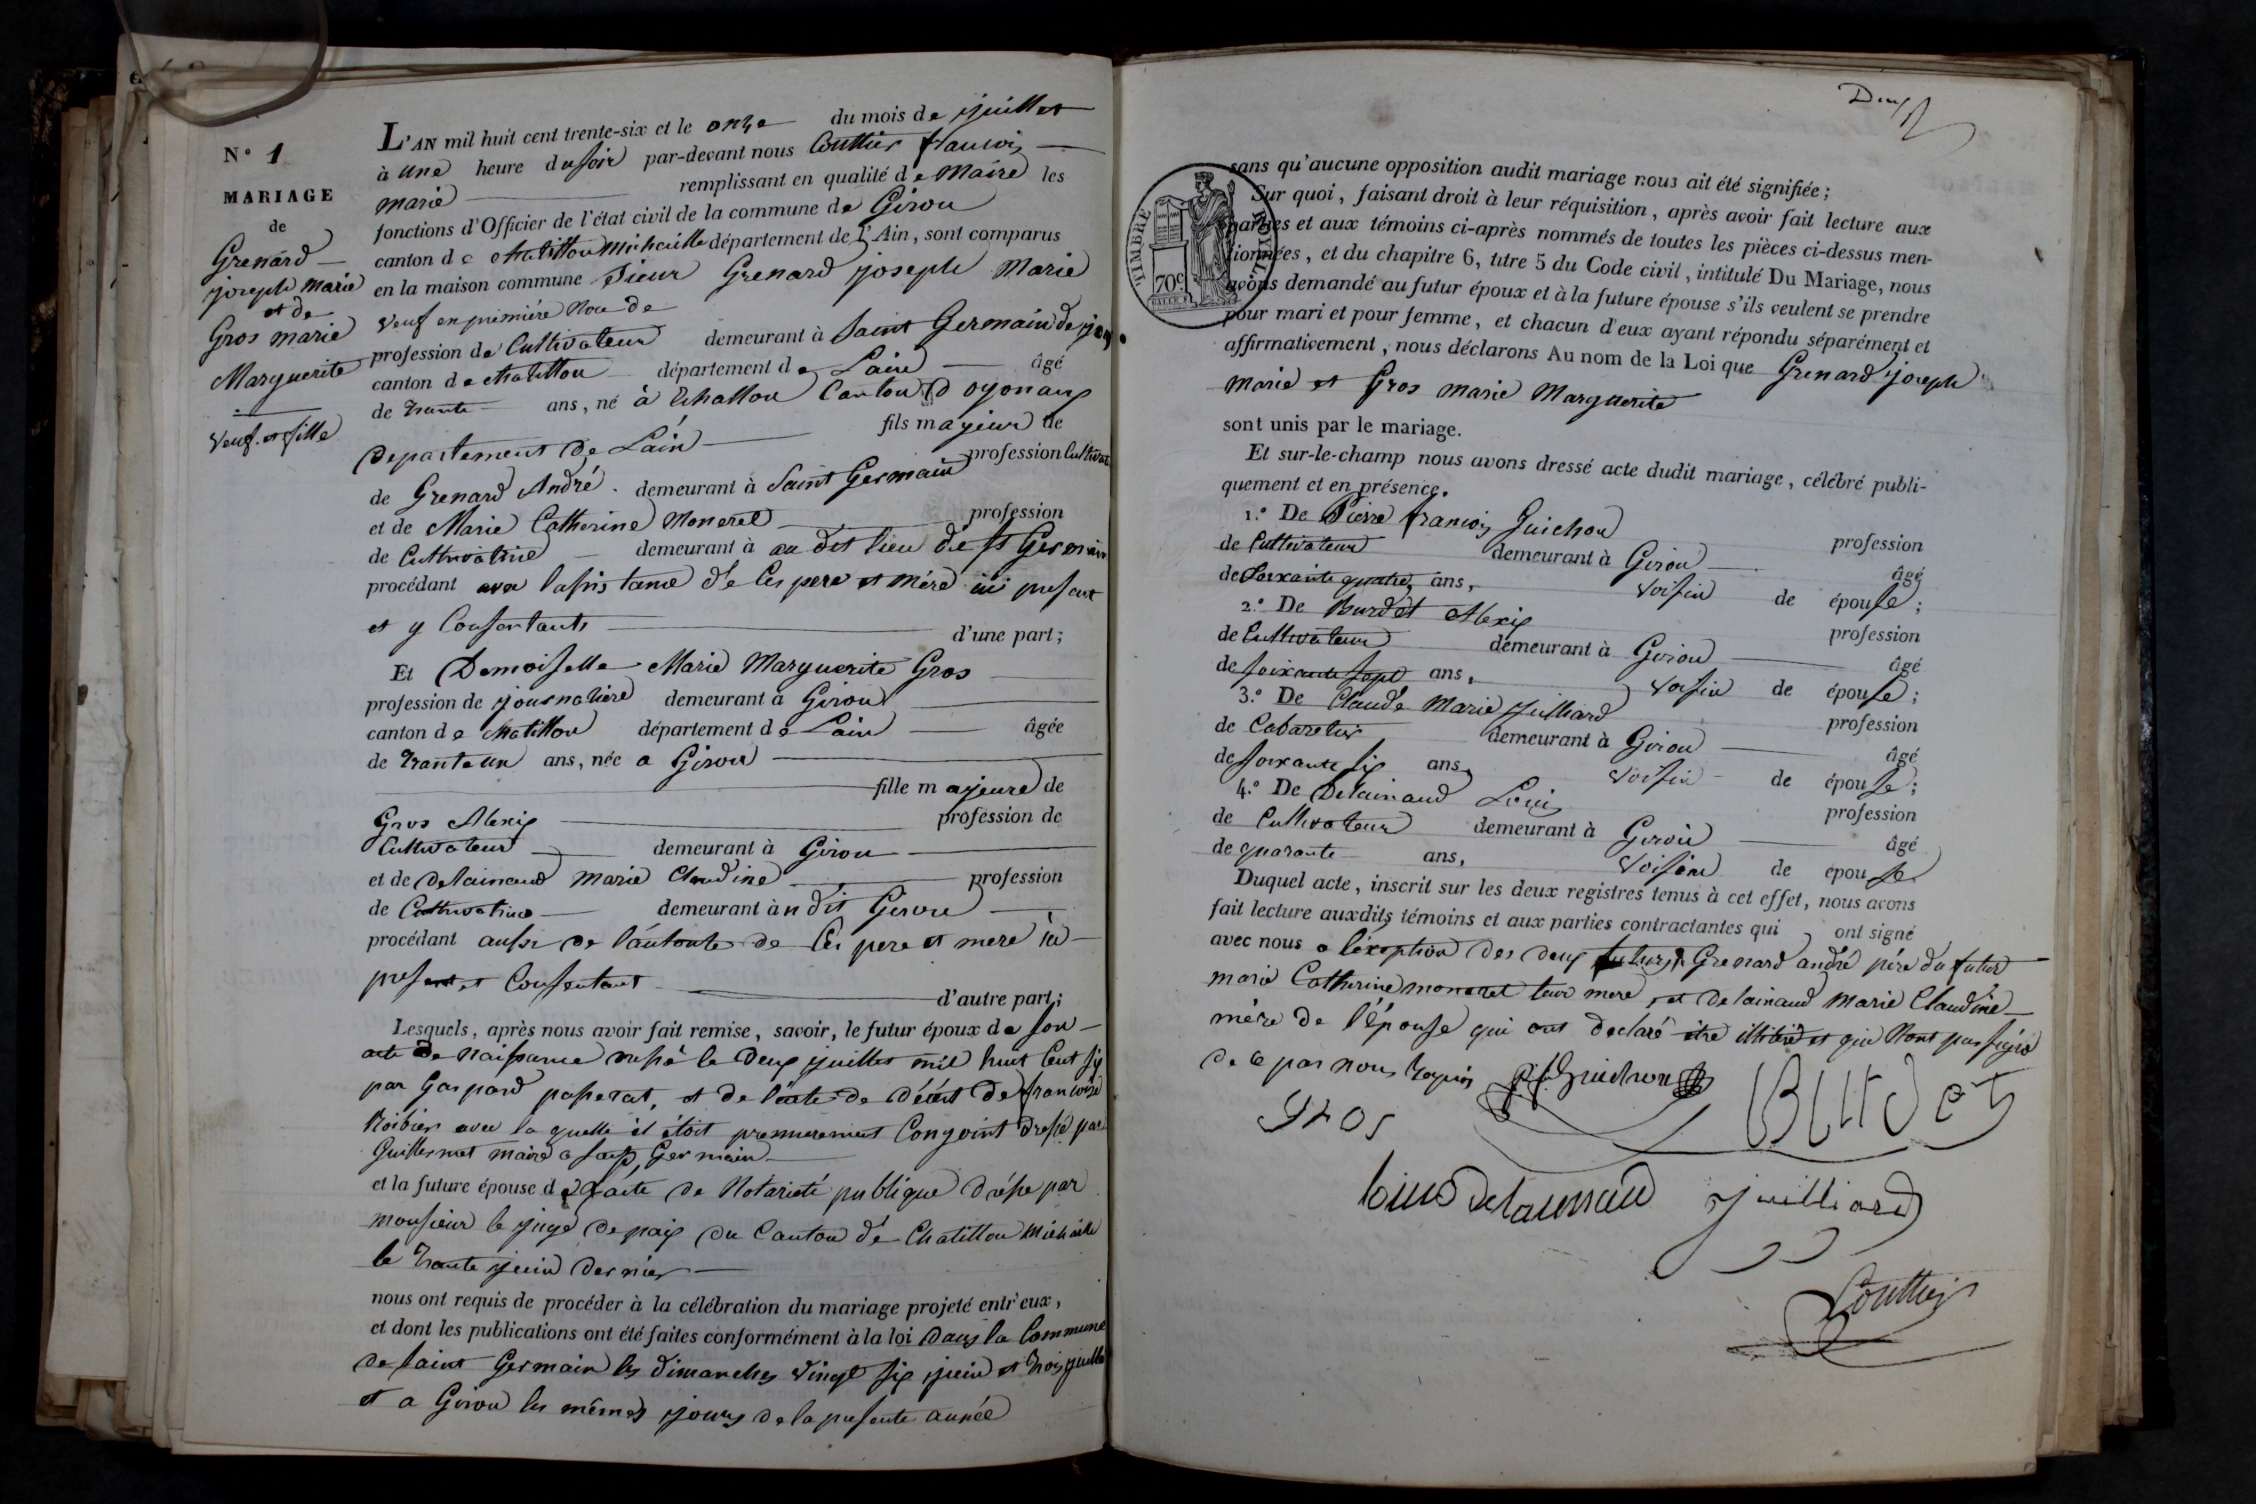 N.° 1
MARIAGE
de
Grenard
joseph marie
et de
Gros marie
Marguerite
veuf et fille
L'AN mil huit cent trente-six et le onze du mois de juillet
à une heure du soir par-devant nous Couttier francois
marie remplissant en qualité de Maire les
fonctions d'Officier de l'état civil de la commune de Giron
canton de chatillon Michaille département de l'Ain, sont comparus
en la maison commune Sieur Grenard joseph Marie
veuf en première Noce de
profession de Cultivateur demeurant à Saint Germain de joux
canton de chatillon département de Lain âgé
de trente ans, né à Echallon Canton d oyonax
departement de Lain fils majeur de
de Grenard André demeurant à Saint Germain profession Cultivat
et de Marie Catherine Moneret profession
de Cultivatrice demeurant à au dit lieu de St Germain
procédant avec lassistance de Ces pere et mére ici present
et y Consentants d'une part;
Et Demoiselle Marie Marguerite Gros
profession de journalière demeurant à Giron
canton de chatillon département de Lain âgée
de trante un ans, née a Giron
fille majeure de
Gros Alexis profession de
Cultivateur demeurant à Giron
et de delainaud marie Claudine profession
de Cultivatrice demeurant àu dit Giron
procédant aussi de láutorite de Ces pere et mere ici
present et Consentant d'autre part;
Lesquels, après nous avoir fait remise, savoir, le futur époux de son
acte de naissance dressé le deux juillet mil huit Cent six
par Gaspard passerat, et de l'acte de décét de francoise
avec la quelle il étoit premierement Conjoint dressé par
Guillermet maire a Saint Germain
et la future épouse de l'acte de Notarieté publique drésse par
monsieur le juge de paix du Canton de Chatillon Michaille
le trante juin dernier
nous ont requis de procéder à la célébration du mariage projeté entr'eux,
et dont les publications ont été faites conformément à la loi dans la Commune
de Saint Germain les dimanches vingt six juin et trois juillet
et a Giron les mêmes jours de la presente année
Deux
TIMBRE ROYAL
70c
sans qu'aucune opposition audit mariage nous ait été signifiée;
Sur quoi, faisant droit à leur réquisition, après avoir fait lecture aux
parties et aux témoins ci-après nommés de toutes les pièces ci-dessus men-
tionnées, et du chapitre 6, titre 5 du Code civil, intitulé Du Mariage, nous
avons demandé au futur époux et à la future épouse s'ils veulent se prendre
pour mari et pour femme, et chacun d'eux ayant répondu séparément et
affirmativement, nous déclarons Au nom de la Loi que Grenard joseph
marie et Gros marie Marguerite
sont unis par le mariage.
Et sur-le-champ nous avons dressé acte dudit mariage, célébré publi-
quement et en présence.
1.° De Pierre francois Guichon profession
de Cultivateur demeurant à Giron âgé
de Soixante quatre ans, voisin de épouse;
2.° De Burdet Alexis profession
de Cultivateur demeurant à Giron âgé
de soixante sept ans, voisin de épouse;
3.° De Claude Marie juilliard profession
de Cabaretier demeurant à Giron âgé
de soixante six ans, voisin de épouse;
4.° De Delainaud Louis profession
de Cultivateur demeurant à Giron âgé
de quarante ans, voisin de épouse
Duquel acte, inscrit sur les deux registres tenus à cet effet, nous avons
fait lecture auxdits témoins et aux parties contractantes qui ont signé
avec nous a léxeption des deux futurs, Grenard andré pére du futur
marie Catherine moneret leur mere, et delainaud Marie Claudine
mére de l'épouse qui ont declaré être illitéré et qui Nont pas signé
de Ce par nous requis p.f. Guichon BURdet
gros
louis delainaud juilliard
Couttier